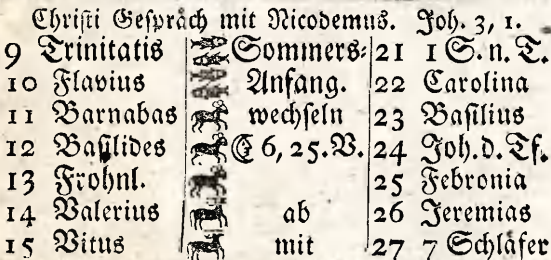 Christi Gespräch mit Nicodemus. Joh. 3, 1.
9 Trinitatis Sommers- 21 1 S. n. T.
10 Flavius Anfang. 22 Carolina
11 Barnabas wechseln 23 Basilius
12 Basilides ☾ 6, 25. V. 24 Joh. d. Tf.
13 Frohnl. 25 Febronia
14 Valerius ab 26 Jeremias
15 Vitus mit 27 7 Schläfer